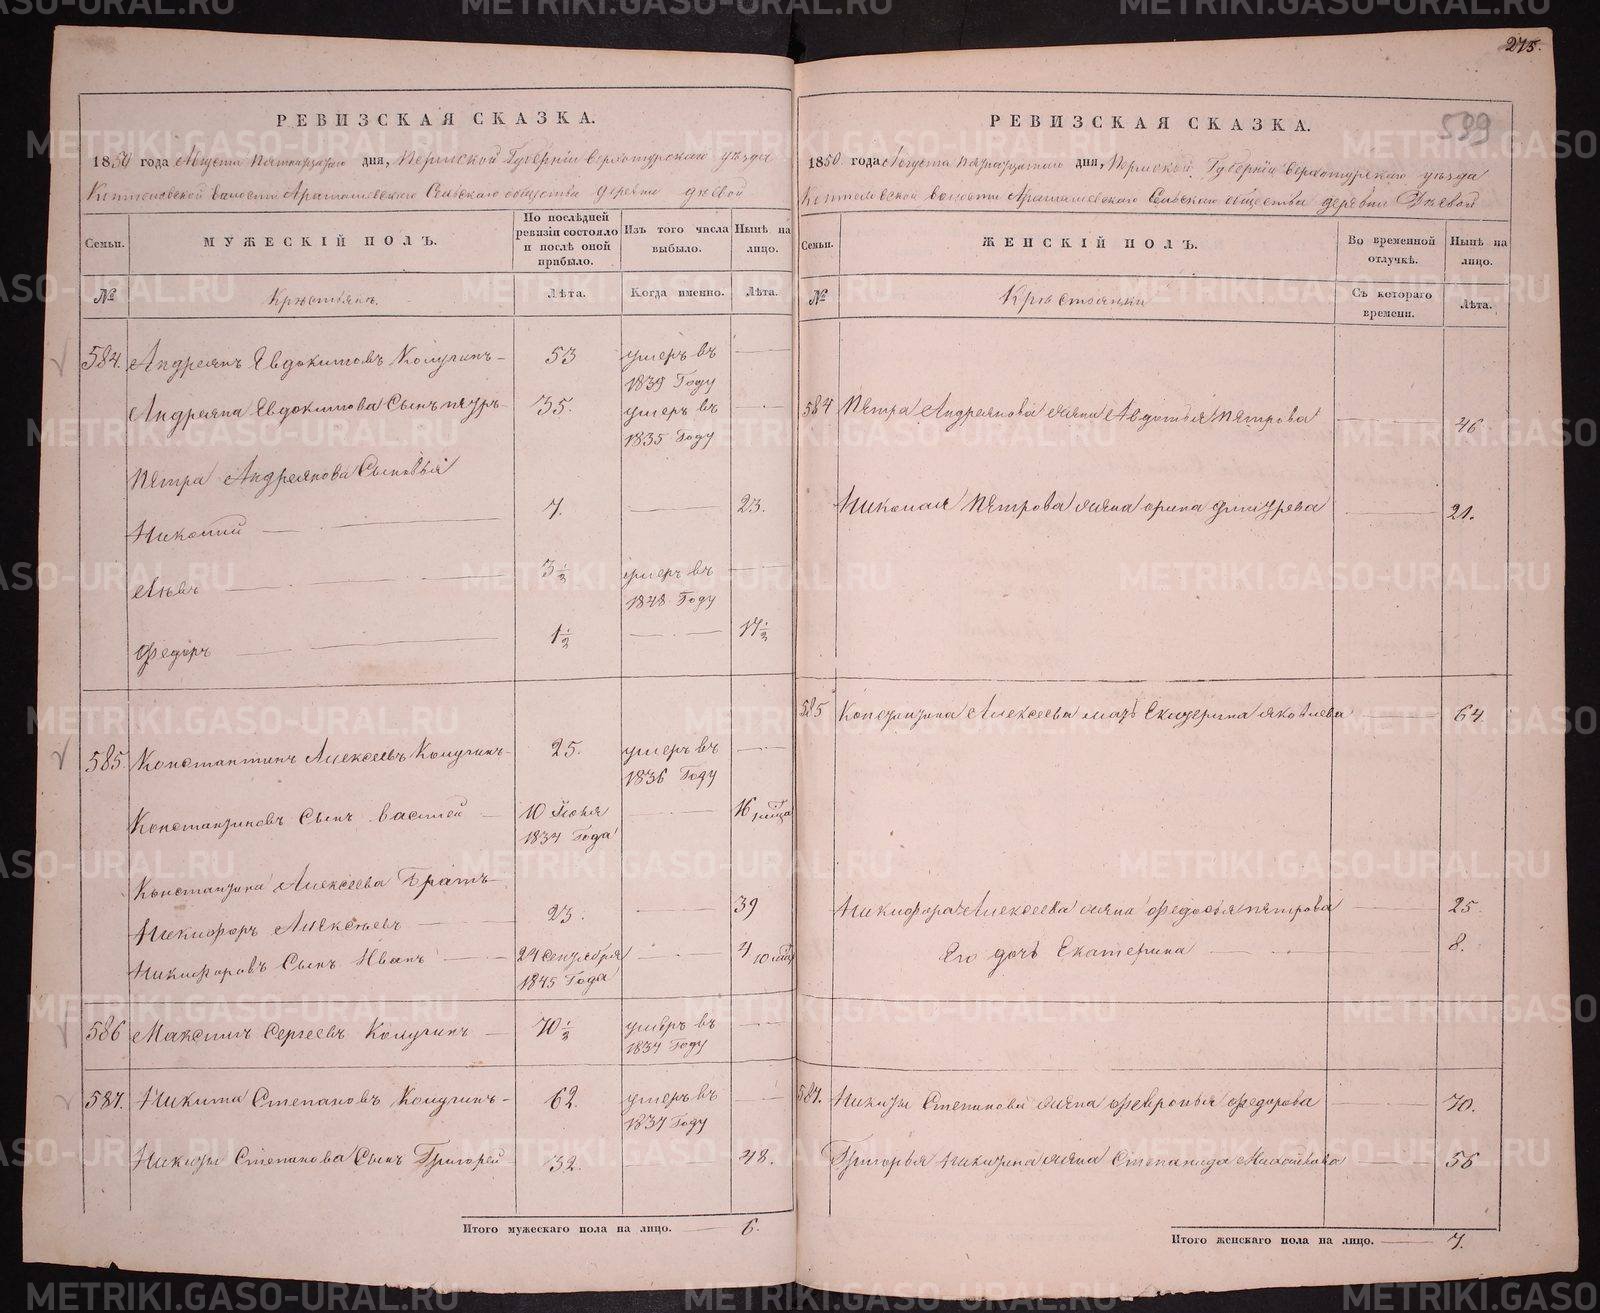 275.
599
РЕВИЗСКАЯ СКАЗКА.
1850 года Августа Пятнадцатаго дня, Пермской Губерніи Верхотурскаго уѣзда
волости Арамашевскаго Сельскаго общества деревни
Семьи.
МУЖЕСКІЙ ПОЛЪ.
По послѣдней ревизіи состояло и послѣ оной прибыло.
Изъ того числа выбыло.
Нынѣ на лицо.
№
Крестьянъ.
Лѣта.
Когда именно.
Лѣта.
584. Андреянъ Евдокимовъ Колугинъ 53 умеръ въ 1839 Году
Андреяна Евдокимова Сынъ Пятръ 35. умеръ въ 1835 Году
Пятра Андреянова Сыновья
Николай 7. 23.
Лѣвъ 3 1/2 умеръ въ 1848 Году
Федоръ 1 1/2 17 1/2
585. Константинъ Алексеевъ Колугинъ 25. умеръ въ 1836 Году
Константиновъ Сынъ Василей 10 Июня 1834 Года 16
Константина Алексеева Братъ
Никифоръ Алексѣевъ 23. 39
Никифоровъ Сынъ Иванъ 24 Сентября 1845 Года 4 10
586 Максимъ Сергеевъ Колугинъ 70 1/2 умеръ въ 1834 Году
587. Никита Степановъ Колугинъ 62. умеръ въ 1837 Году
Никиты Степанова Сынъ Григорей 32. 48.
Итого мужескаго пола на лицо. 6.
РЕВИЗСКАЯ СКАЗКА.
1850 года Августа Пятнадцатаго дня, Пермской Губерніи Верхотурскаго уѣзда
волости Арамашевскаго Сельскаго общества деревни
Семьи.
ЖЕНСКІЙ ПОЛЪ.
Во временной отлучкѣ.
Нынѣ на лицо.
№
Крестьянки
Съ котораго времени.
Лѣта.
584 Пятра Андреянова жена Авдотья Пятрова 46
Николая Пятрова жена орина Дмитрева 21.
585 Константина Алексеева мать Екатерина Яковлева 64
Никифора Алексеева жена Федосья Пятрова 25.
Его дочь Екатерина 8.
587. Никиты Степанова жена Февронья Федорова 70.
Григорья Никитина жена Степанида 56
Итого женскаго пола на лицо. 7.
METRIKI.GASO-URAL.RU